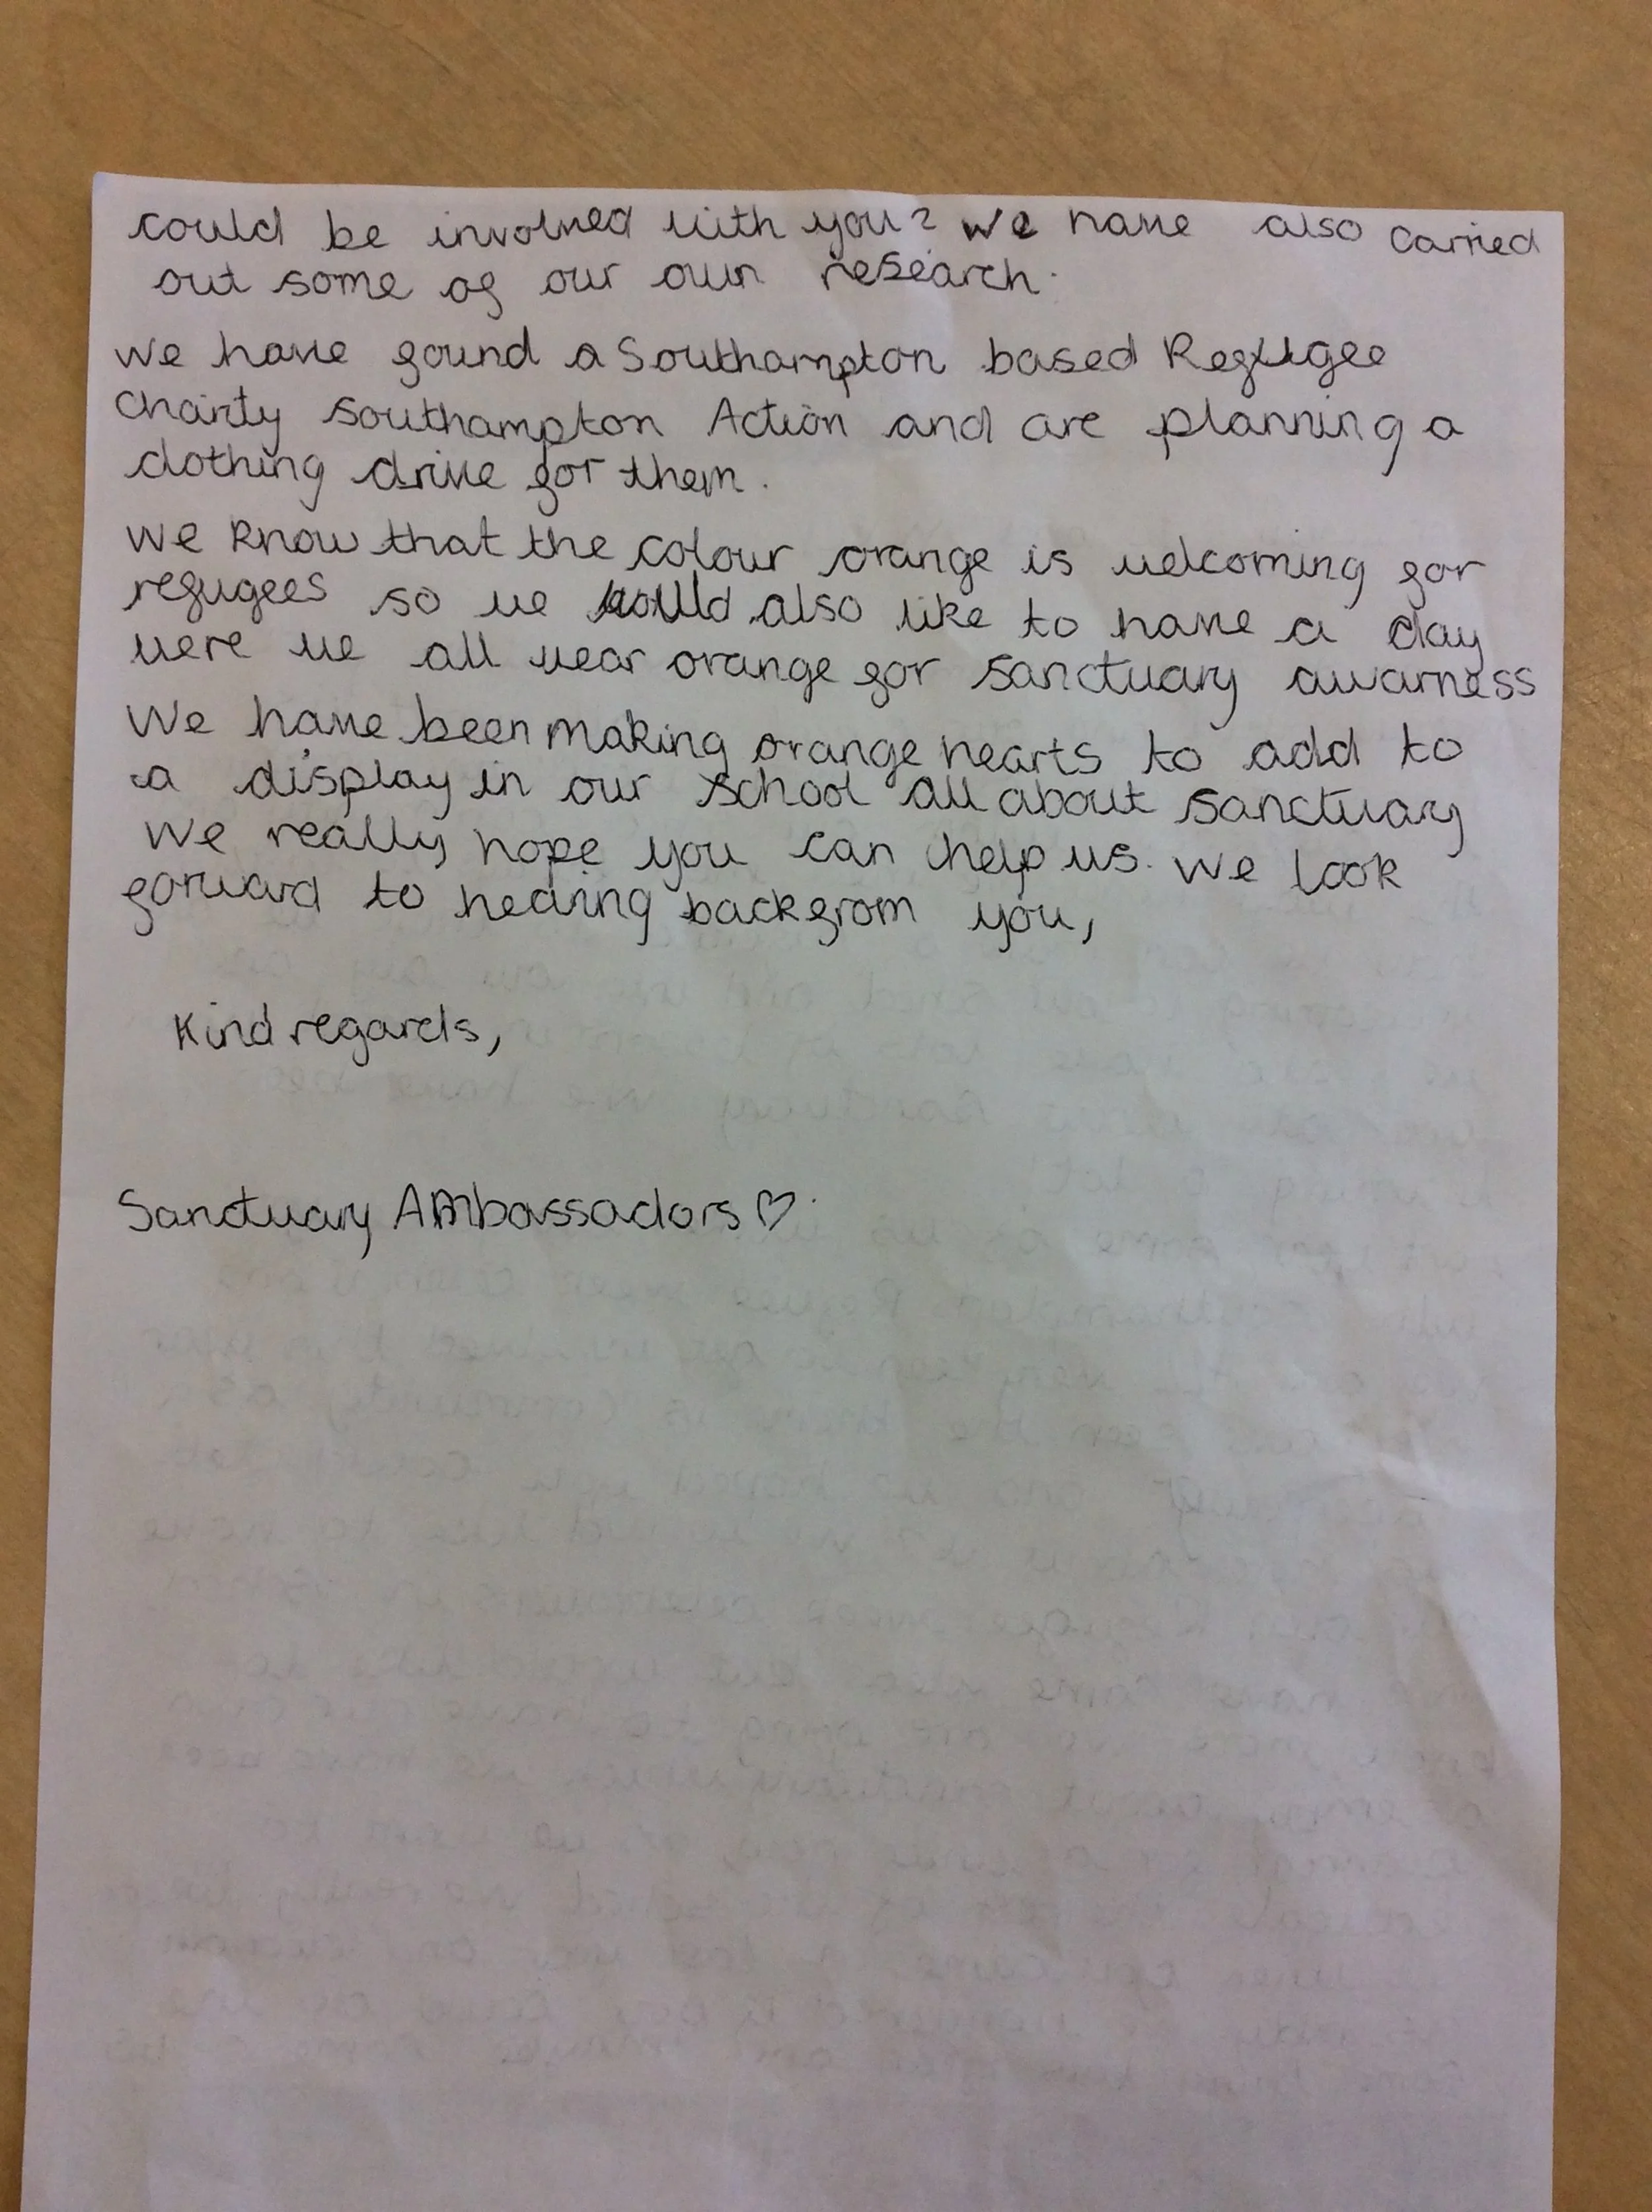 could be involved with you? We have also carried
out some of our own research.
We have found a Southampton based Refugee
charity Southampton Action and are planning a
clothing drive for them.
We know that the colour orange is welcoming for
refugees so we would also like to have a day
were we all wear orange for sanctuary awarness
We have been making orange hearts to add to
a display in our school all about sanctuary
We really hope you can help us. We look
forward to hearing back from you,
Kind regards,
Sanctuary Ambassadors ♡.